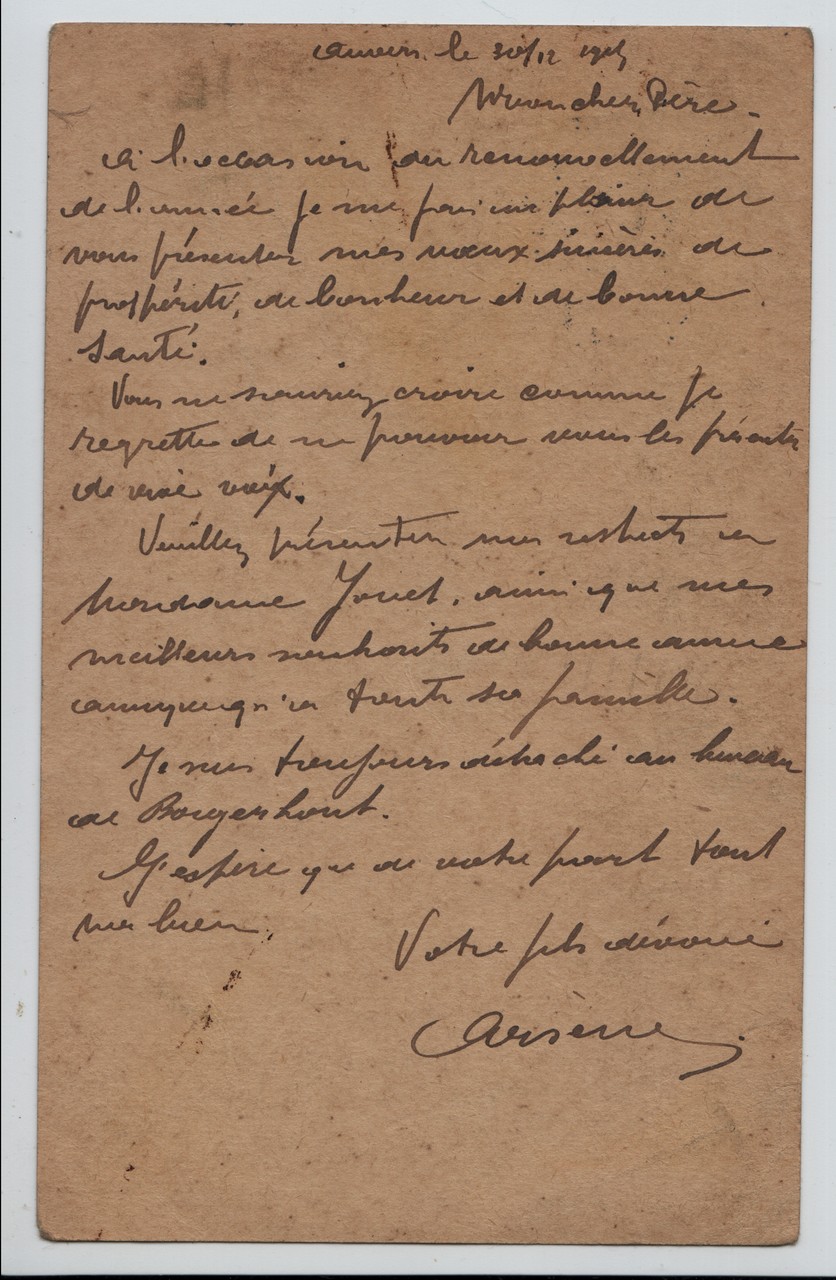 Anvers le 30/12 1915
Mon cher Père.
A l'occasion du renouvellement
de l'année je me fais un plaisir de
vous présenter mes vœux sincères de
prospérité, de bonheur et de bonne
santé.
Vous ne sauriez croire comme je
regrette de ne pouvoir vous les présenter
de vive voix.
Veuillez présenter mes respects à
Madame Jouet, ainsi que mes
meilleurs souhaits de bonne année
ainsi qu'à toute sa famille.
Je suis toujours détaché au bureau
de Borgerhout.
J'espère que de votre part tout
va bien.
Votre fils dévoué
Arsène.